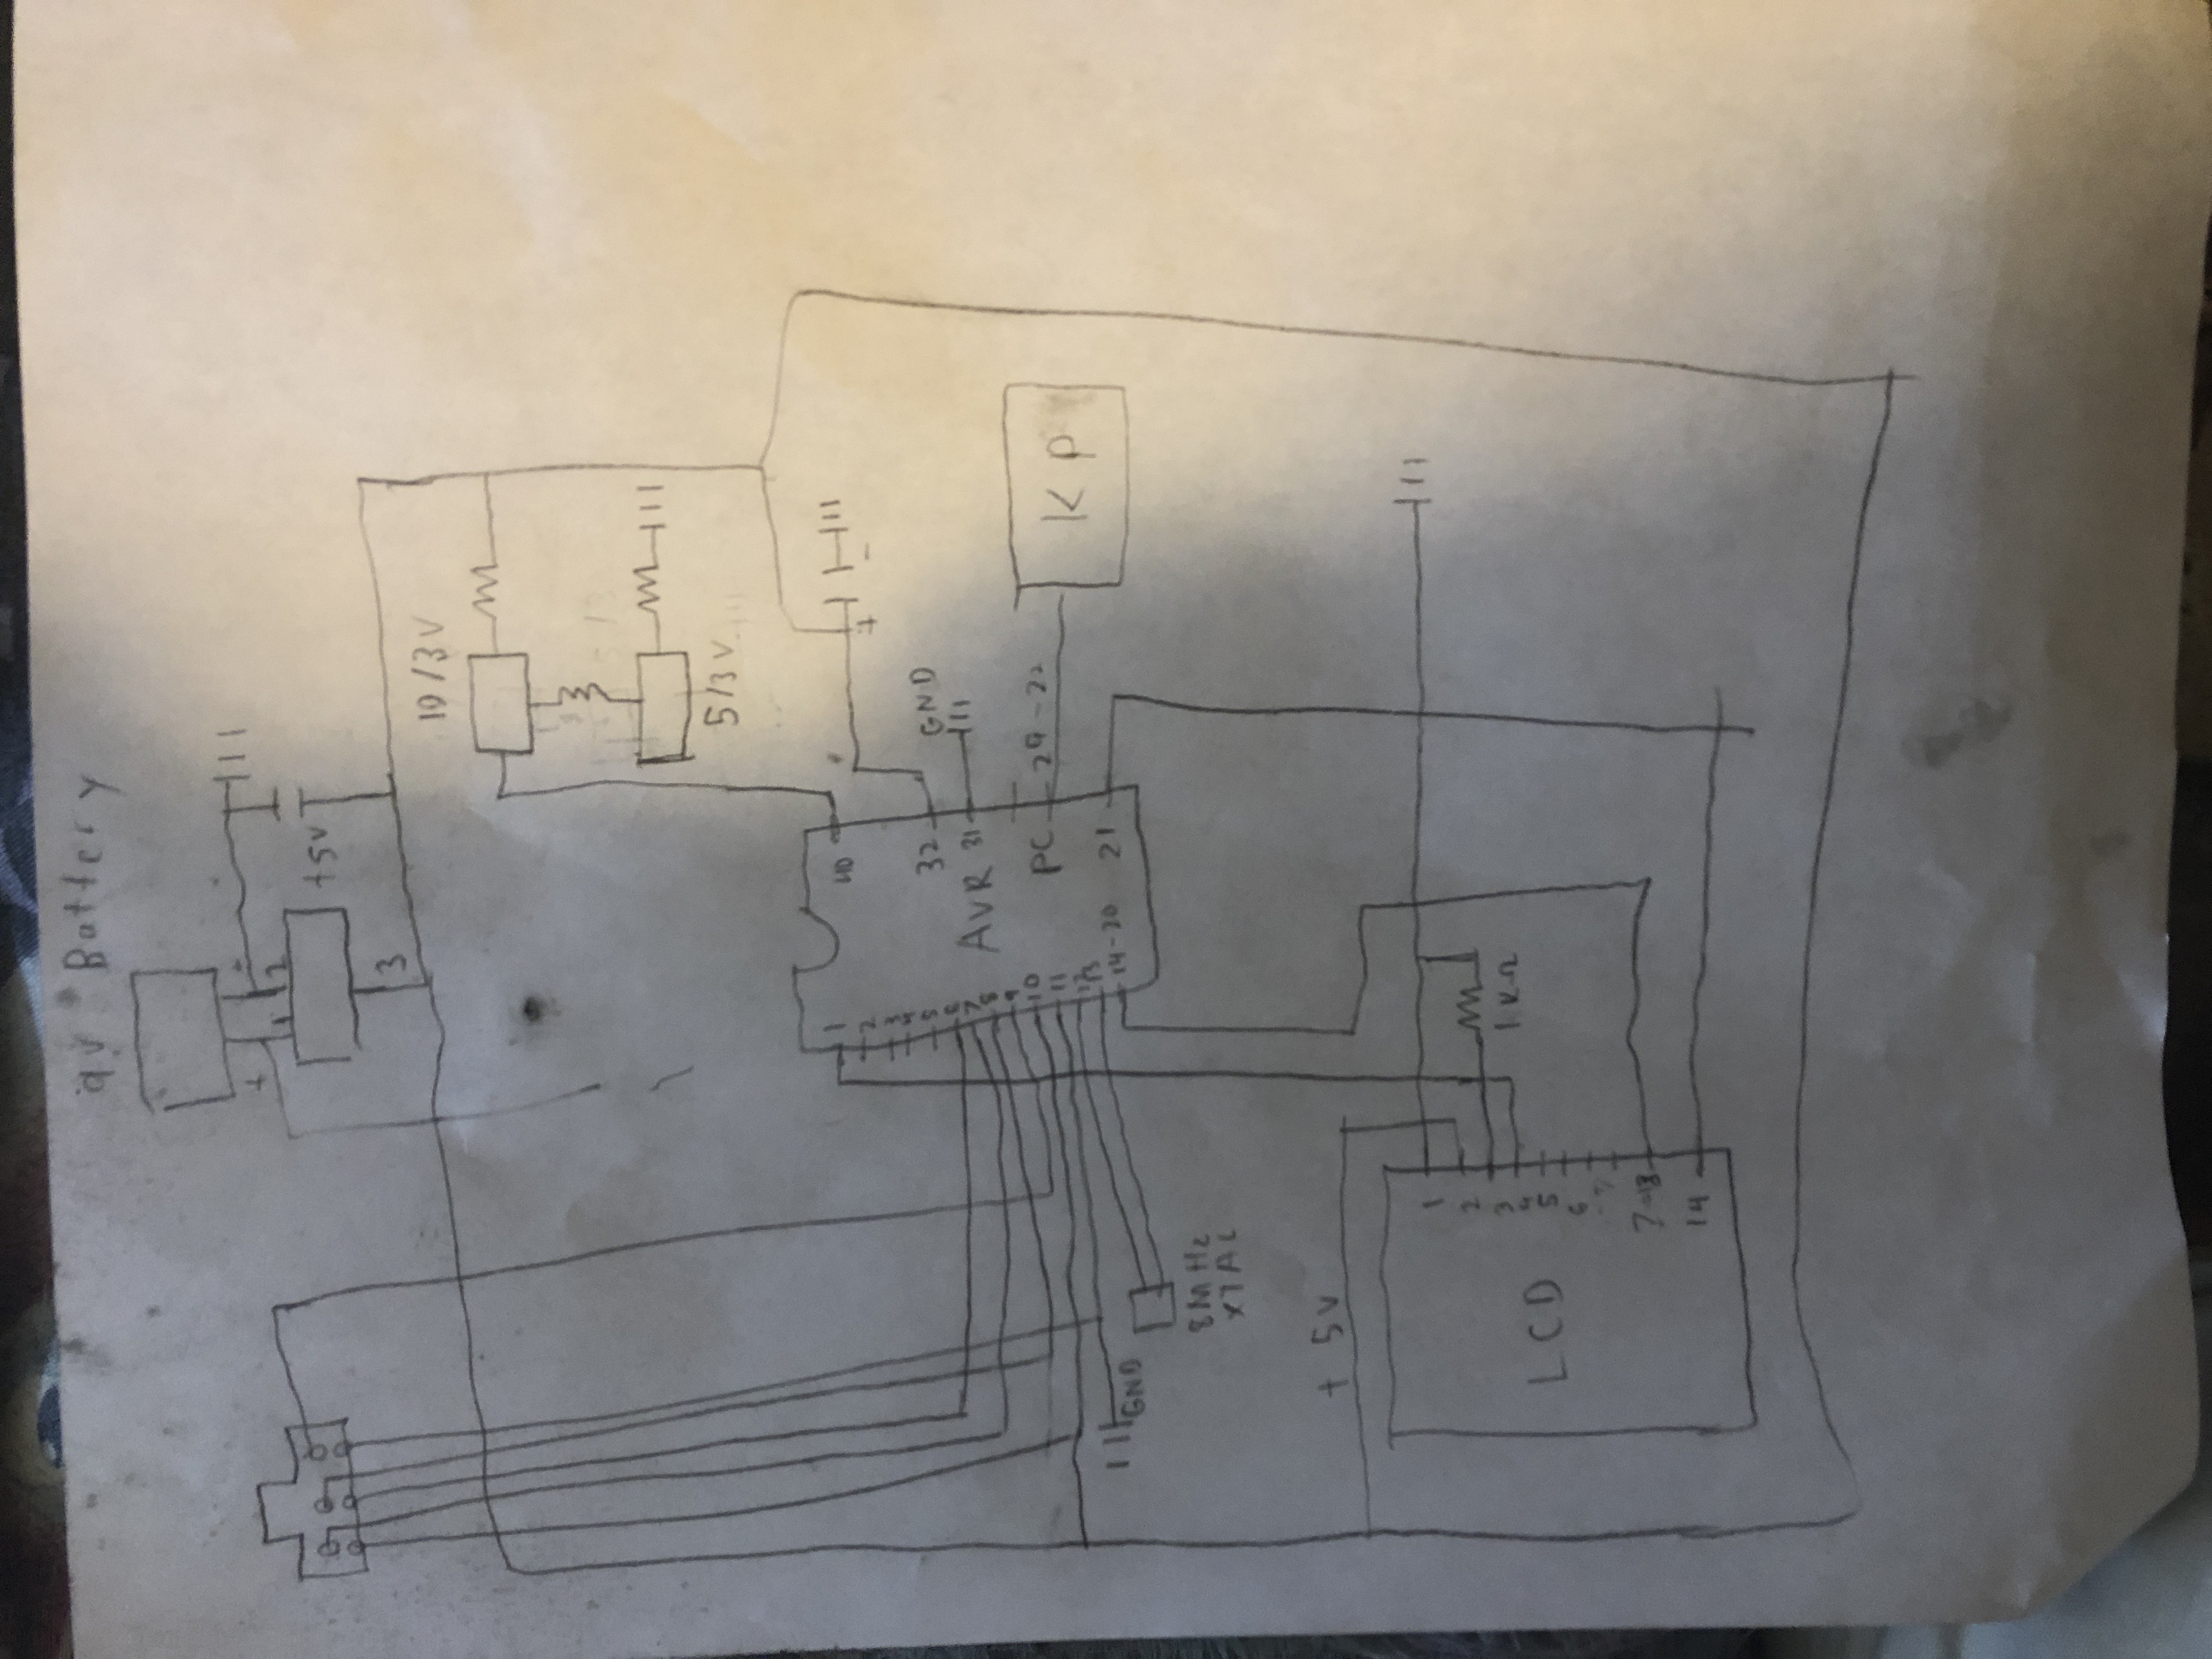 9V Battery
+ -
1 2
+5V
3
10/3V
5/3V
1
2
3
4
5
6
7
8
9
10
11
12
13
14-20
40
+ -
32
GND
31
AVR
PC 29-22
KP
21
GND
8MHz
XTAL
+ 5V
1
2
3
4
5
6
7-13
14
LCD
1KΩ